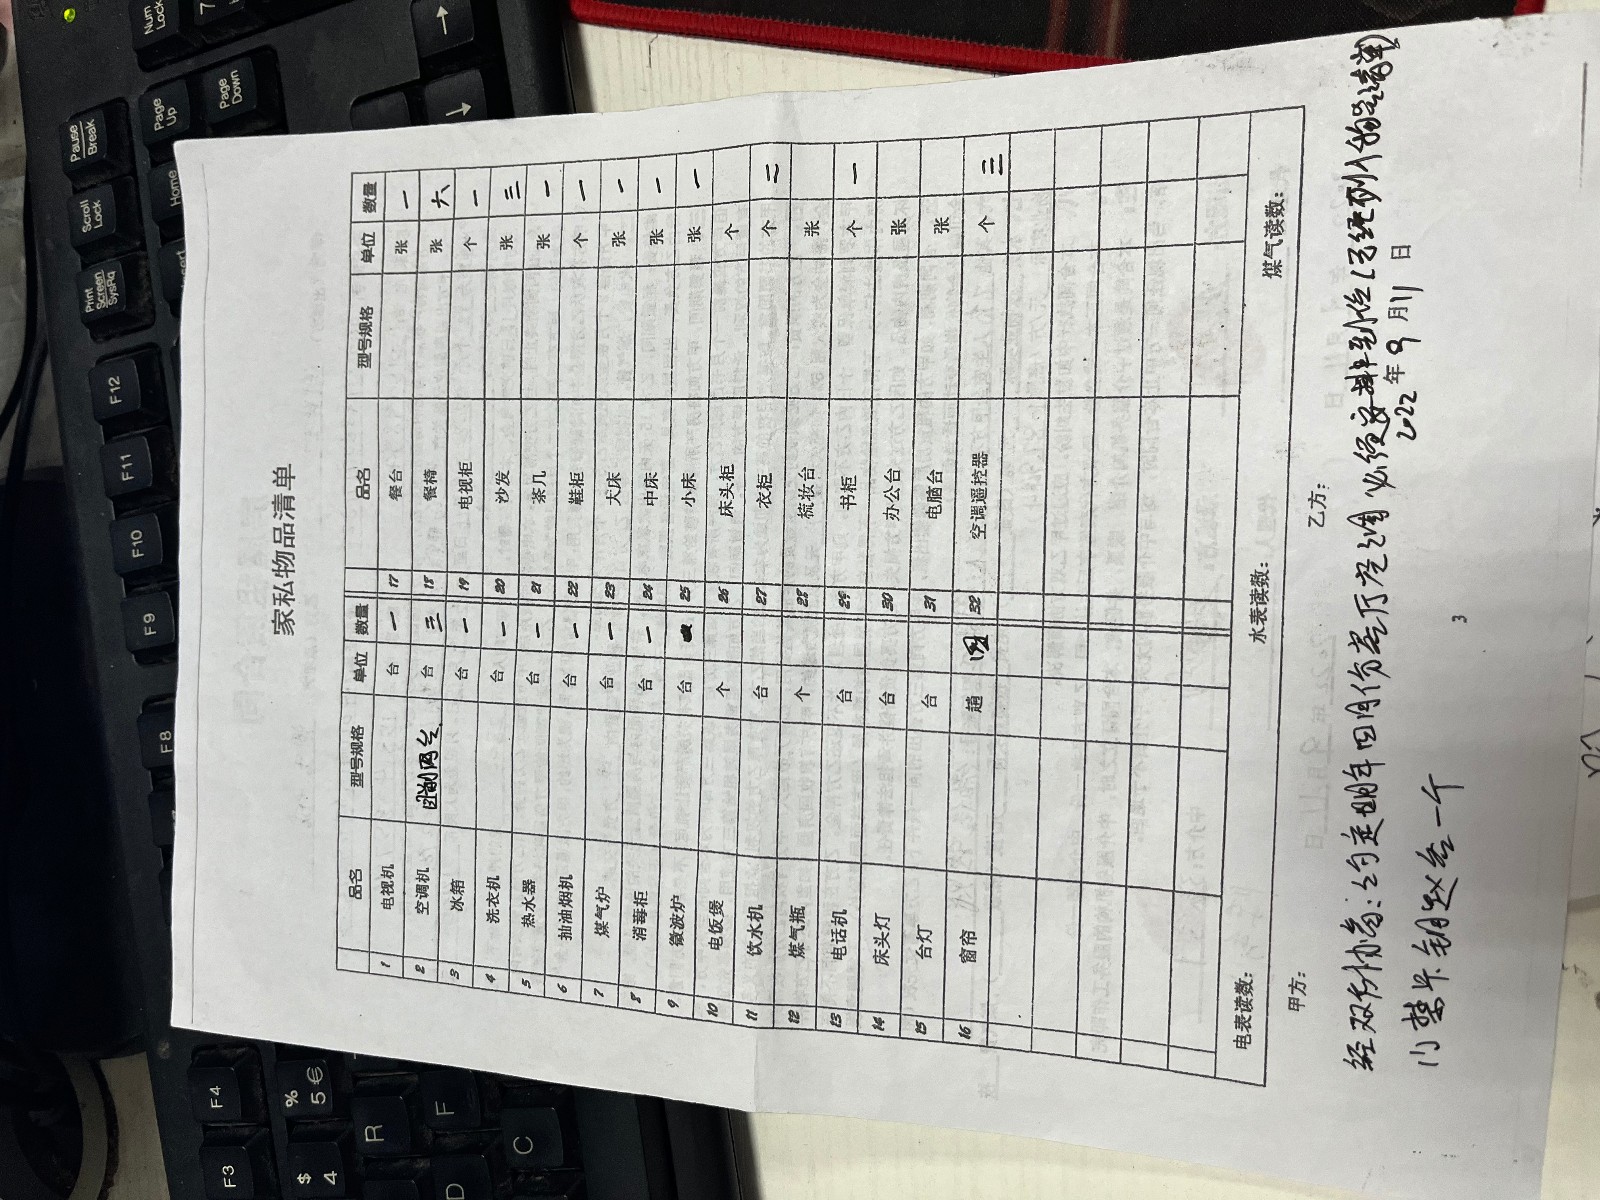 家私物品清单
品名 型号规格 单位 数量 品名 型号规格 单位 数量
1 电视机 台 一 17 餐台 张 一
2 空调机 台 三 18 餐椅 张 六
3 冰箱 台 一 19 电视柜 个 一
4 洗衣机 台 一 20 沙发 张 三
5 热水器 台 一 21 茶几 张 一
6 抽油烟机 台 一 22 鞋柜 个 一
7 煤气炉 台 一 23 大床 张 一
8 消毒柜 台 一 24 中床 张 一
9 微波炉 台 25 小床 张 一
10 电饭煲 个 26 床头柜 个
11 饮水机 台 27 衣柜 个 二
12 煤气瓶 个 28 梳妆台 张
13 电话机 台 29 书柜 个 一
14 床头灯 台 30 办公台 张
15 台灯 台 31 电脑台 张
16 窗帘 趟 四 32 空调遥控器 个 三
电表读数: 水表读数: 煤气读数:
甲方: 乙方:
2022 年 9 月 11 日
经双方协商:约定明年四月份客厅空调必须安排到位
门禁卡钥匙叁一个
3
Num Lock
7
Pause Break
Page Up
Page Down
Scroll Lock
Home
Print Screen SysRq
F12
F11
F10
F9
F8
F4
F3
% 5 €
$ 4
R
F
D
C